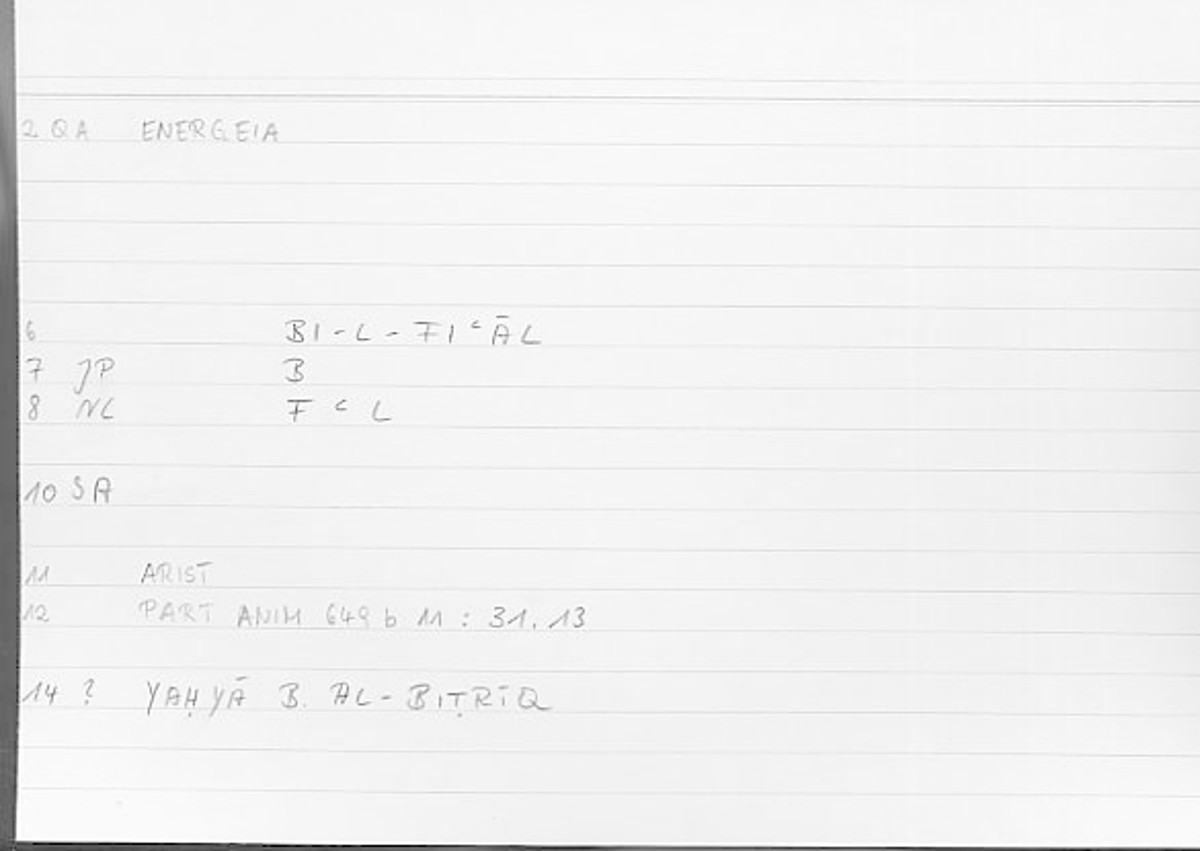 2 QA ENERGEIA
6 BI-L-FIʿĀL
7 JP B
8 NC F ʿ L
10 SA
11 ARIST
12 PART ANIM 649 b 11 : 31.13
14 ? YAḤYĀ B. AL-BIṬRĪQ